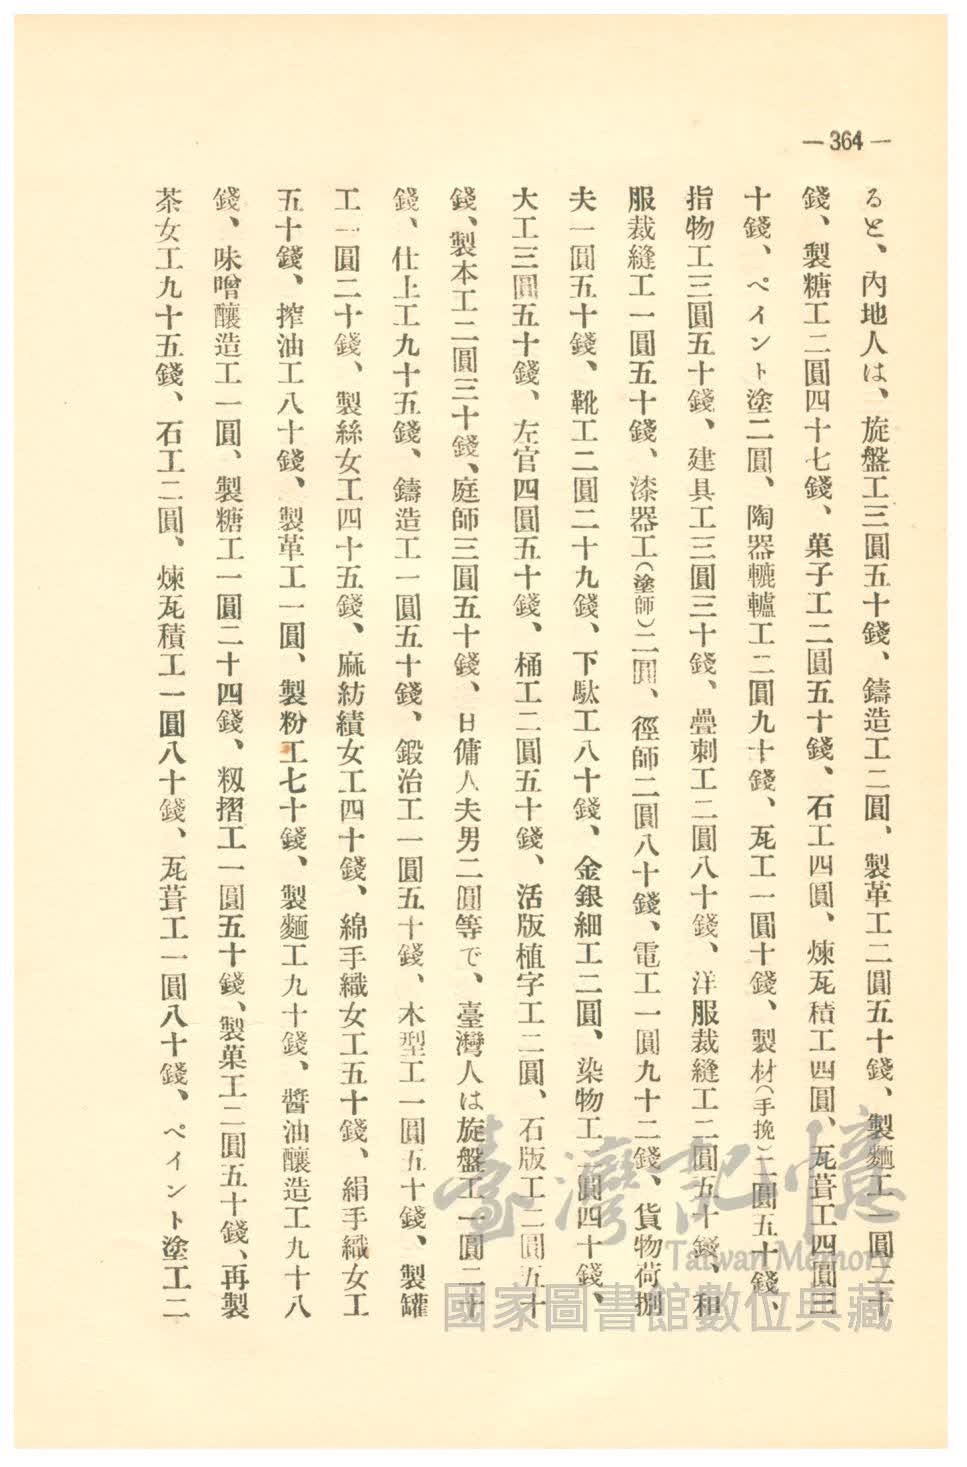 — 364 —
ると、內地人は、旋盤工三圓五十錢、鑄造工二圓、製革工二圓五十錢、製麵工一圓二十
錢、製糖工二圓四十七錢、菓子工二圓五十錢、石工四圓、煉瓦積工四圓、瓦葺工四圓三
十錢、ペイント塗二圓、陶器轆轤工二圓九十錢、瓦工一圓十錢、製材(手挽)二圓五十錢、
指物工三圓五十錢、建具工三圓三十錢、疊刺工二圓八十錢、洋服裁縫工二圓五十錢、和
服裁縫工一圓五十錢、漆器工(塗師)二圓、徑師二圓八十錢、電工一圓九十二錢、貨物荷捌
夫一圓五十錢、靴工二圓二十九錢、下駄工八十錢、金銀細工二圓、染物工二圓四十錢、
大工三圓五十錢、左官四圓五十錢、桶工二圓五十錢、活版植字工二圓、石版工二圓五十
錢、製本工二圓三十錢、庭師三圓五十錢、日傭人夫男二圓等で、臺灣人は旋盤工一圓二十
錢、仕上工九十五錢、鑄造工一圓五十錢、鍛治工一圓五十錢、木型工一圓五十錢、製罐
工一圓二十錢、製絲女工四十五錢、麻紡績女工四十錢、綿手織女工五十錢、絹手織女工
五十錢、搾油工八十錢、製革工一圓、製粉工七十錢、製麵工九十錢、醬油釀造工九十八
錢、味噌釀造工一圓、製糖工一圓二十四錢、籾摺工一圓五十錢、製菓工二圓五十錢、再製
茶女工九十五錢、石工二圓、煉瓦積工一圓八十錢、瓦葺工一圓八十錢、ペイント塗工二
臺灣記憶
Taiwan Memory
國家圖書館數位典藏